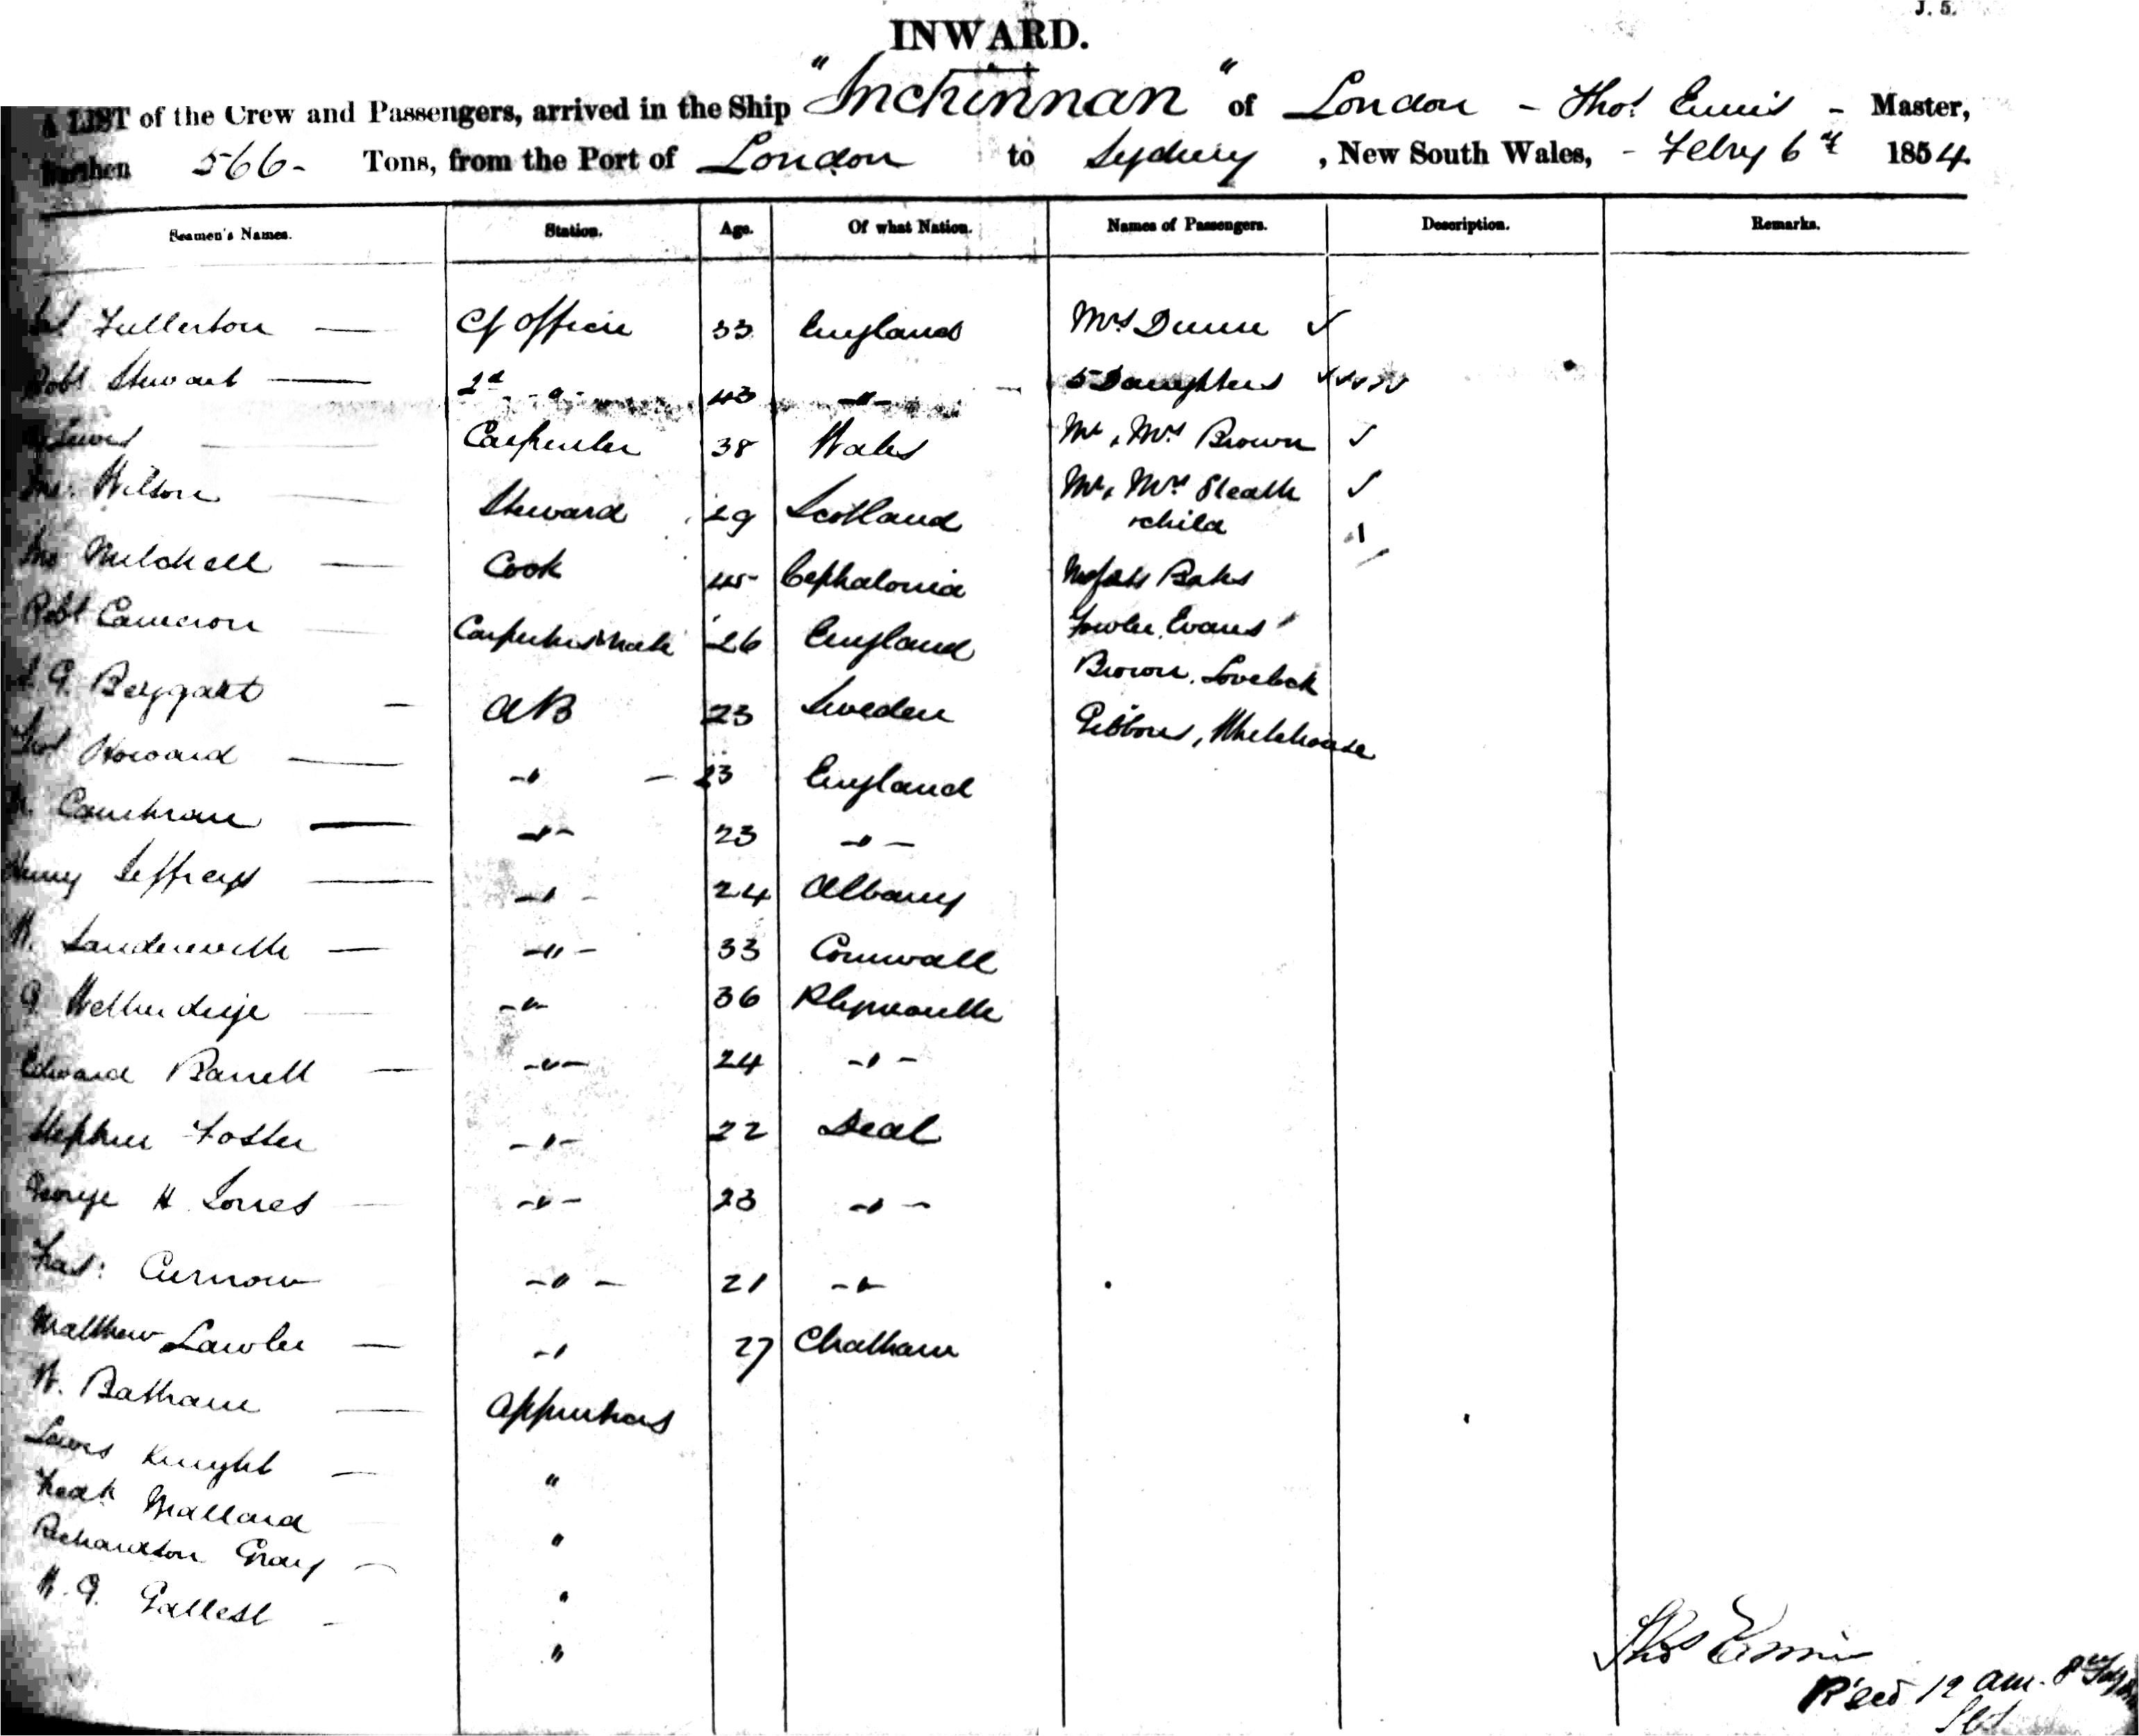 J. 5.
INWARD.
A LIST of the Crew and Passengers, arrived in the Ship "Inchinnan" of London - Thos. Ennis - Master,
Burthen 566 - Tons, from the Port of London to Sydney, New South Wales, - Febry 6th 1854.
Seamen's Names. Station. Age. Of what Nation. Names of Passengers. Description. Remarks.
Fullerton — Cf Officer 33 England Mrs Dunn ✓
Robt Stewart — 2d - " - 43 - " - 5 Daughters ✓✓✓✓✓
Lewis — Carpenter 38 Wales Mr, Mrs Brown ✓
Wilson — Steward 29 Scotland Mr, Mrs Sleath ✓
+ child
Mitchell — Cook 45 Cephalonia Bates
Robt Cameron — Carpenters Mate 26 England Fowler, Evans
Brown, Lovelock
AB 23 Sweden Gibbons, Whitehouse
Thos Howard — - " - 23 England
— - " - 23 - " -
Henry Jeffreys — - " - 24 Albany
W. — - " - 33 Cornwall
G — - " - 36 Plymouth
Edward Barrett — - " - 24 - " -
Stephen Foster - " - 22 Deal
George H Jones — - " - 23 - " -
Chas: Curnow - " - 21 - " -
Matthew Lawler — - " 27 Chatham
W. Batham — Apprentices
Lewis Knight — "
Mallard "
Richardson Gray — "
W. G. "
Thos Ennis
Rced 12 am. 8th